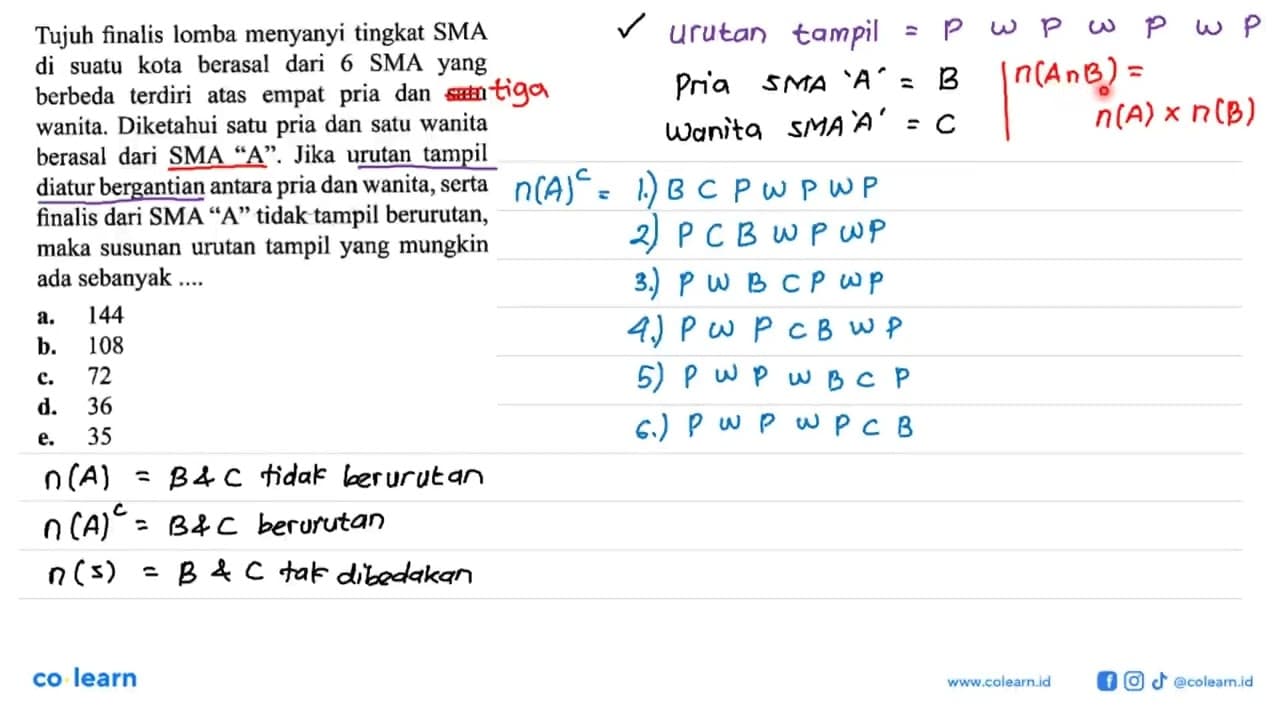 Tujuh finalis lomba menyanyi tingkat SMA
di suatu kota berasal dari 6 SMA yang
berbeda terdiri atas empat pria dan satu tiga
wanita. Diketahui satu pria dan satu wanita
berasal dari SMA “A”. Jika urutan tampil
diatur bergantian antara pria dan wanita, serta
finalis dari SMA “A” tidak tampil berurutan,
maka susunan urutan tampil yang mungkin
ada sebanyak ....
a. 144
b. 108
c. 72
d. 36
e. 35
n(A) = B & C tidak berurutan
n(A)ᶜ = B & C berurutan
n(s) = B & C tak dibedakan
✓ urutan tampil = P W P W P W P
Pria SMA 'A' = B
Wanita SMA 'A' = C
n(A∩B) =
n(A) x n(B)
n(A)ᶜ = 1.) B C P W P W P
2) P C B W P W P
3.) P W B C P W P
4.) P W P C B W P
5) P W P W B C P
6.) P W P W P C B
co learn
www.colearn.id
@colearn.id